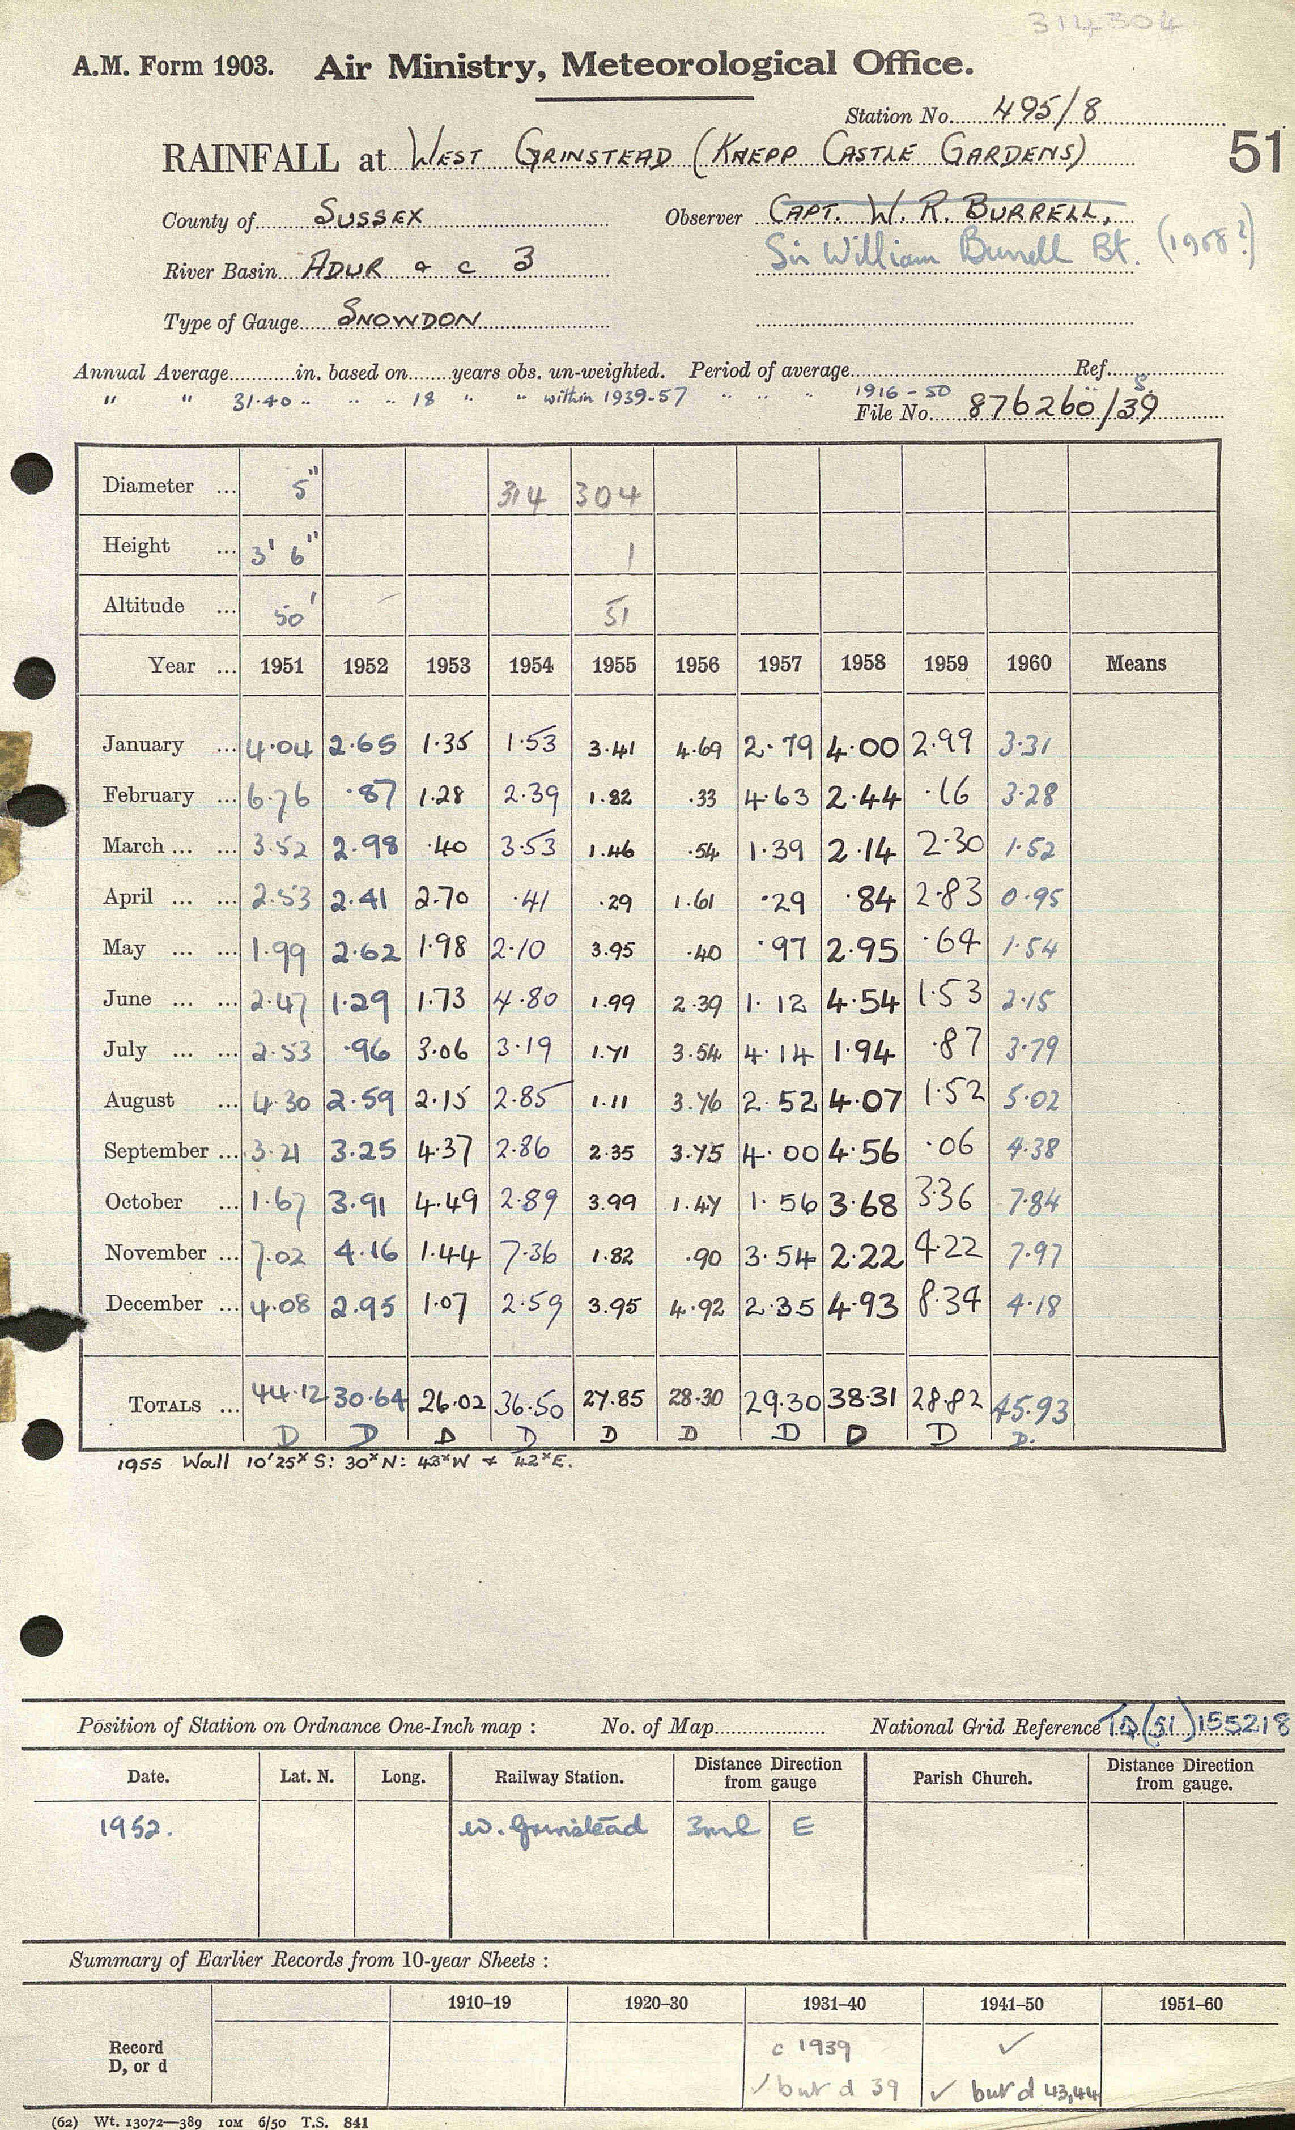 314304
A.M. Form 1903. Air Ministry, Meteorological Office.
Station No. 495/8
RAINFALL at WEST GRINSTEAD (KNEPP CASTLE GARDENS) 51
County of SUSSEX Observer CAPT. W. R. BURRELL.
River Basin ADUR a c 3 Sir William Burrell Bt. (1958?)
Type of Gauge SNOWDON
Annual Average in. based on years obs. un-weighted. Period of average Ref.
" " 31.40 " " " 18 " " within 1939-57 " " " 1916-50
File No. 876260/39 S.
Diameter ... 5" 314 304
Height ... 3' 6" 1
Altitude ... 50' 51
Year ... 1951 1952 1953 1954 1955 1956 1957 1958 1959 1960 Means
January ... 4.04 2.65 1.35 1.53 3.41 4.69 2.79 4.00 2.99 3.31
February ... 6.76 .87 1.28 2.39 1.82 .33 4.63 2.44 .16 3.28
March ... ... 3.52 2.98 .40 3.53 1.46 .54 1.39 2.14 2.30 1.52
April ... ... 2.53 2.41 2.70 .41 .29 1.61 .29 .84 2.83 0.95
May ... ... 1.99 2.62 1.98 2.10 3.95 .40 .97 2.95 .64 1.54
June ... ... 2.47 1.29 1.73 4.80 1.99 2.39 1.12 4.54 1.53 2.15
July ... ... 2.53 .96 3.06 3.19 1.71 3.54 4.14 1.94 .87 3.79
August ... 4.30 2.59 2.15 2.85 1.11 3.76 2.52 4.07 1.52 5.02
September ... 3.21 3.25 4.37 2.86 2.35 3.75 4.00 4.56 .06 4.38
October ... 1.67 3.91 4.49 2.89 3.99 1.47 1.56 3.68 3.36 7.84
November ... 7.02 4.16 1.44 7.36 1.82 .90 3.54 2.22 4.22 7.97
December ... 4.08 2.95 1.07 2.59 3.95 4.92 2.35 4.93 8.34 4.18
TOTALS ... 44.12 30.64 26.02 36.50 27.85 28.30 29.30 38.31 28.82 45.93
D D D D D D D D D D.
1955 Wall 10'25ˣ S: 30ˣN: 43ˣW & 42ˣE.
Position of Station on Ordnance One-Inch map : No. of Map National Grid Reference TQ(51)155218
Date. Lat. N. Long. Railway Station. Distance Direction from gauge Parish Church. Distance Direction from gauge.
1952. W. Grinstead 3ml E
Summary of Earlier Records from 10-year Sheets :
1910–19 1920–30 1931–40 1941–50 1951–60
Record D, or d c 1939 ✓
✓ but d 39 ✓ but d 43,44
(62) Wt. 13072—389 10M 6/50 T.S. 841